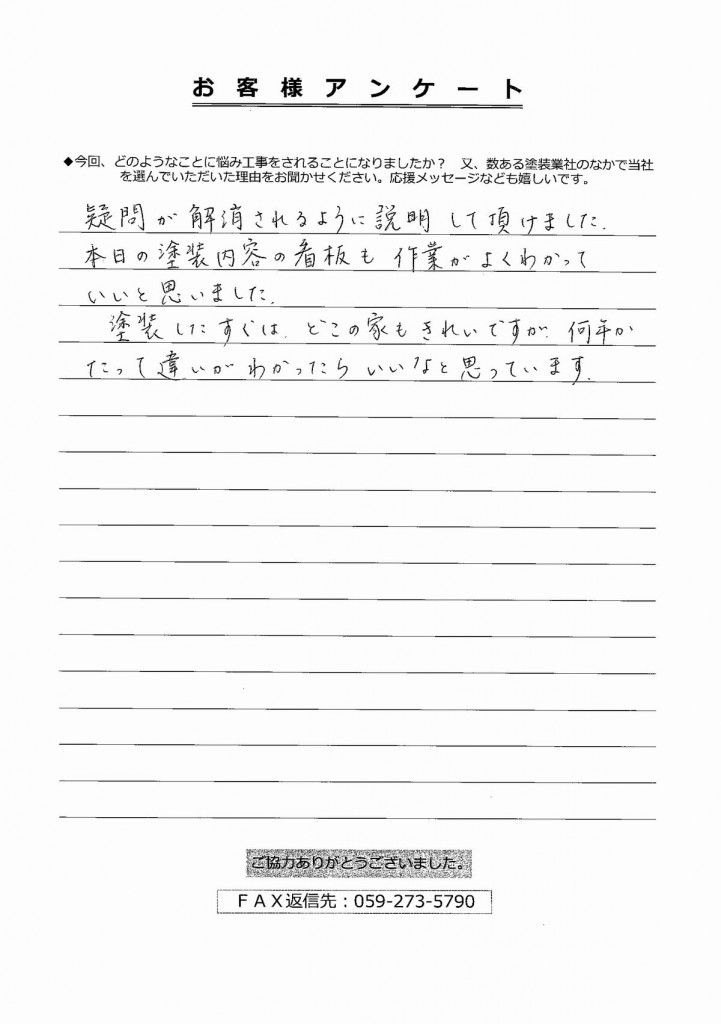 お客様アンケート
◆今回、どのようなことに悩み工事をされることになりましたか？　又、数ある塗装業社のなかで当社
を選んでいただいた理由をお聞かせください。応援メッセージなども嬉しいです。
疑問が解消されるように説明して頂けました.
本日の塗装内容の看板も作業がよくわかって
いいと思いました.
塗装したすぐは.どこの家もきれいですが.何年か
たって違いがわかったらいいなと思っています.
ご協力ありがとうございました。
ＦＡＸ返信先：059-273-5790